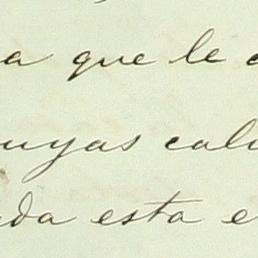 a que le
uyas cali
da esta e